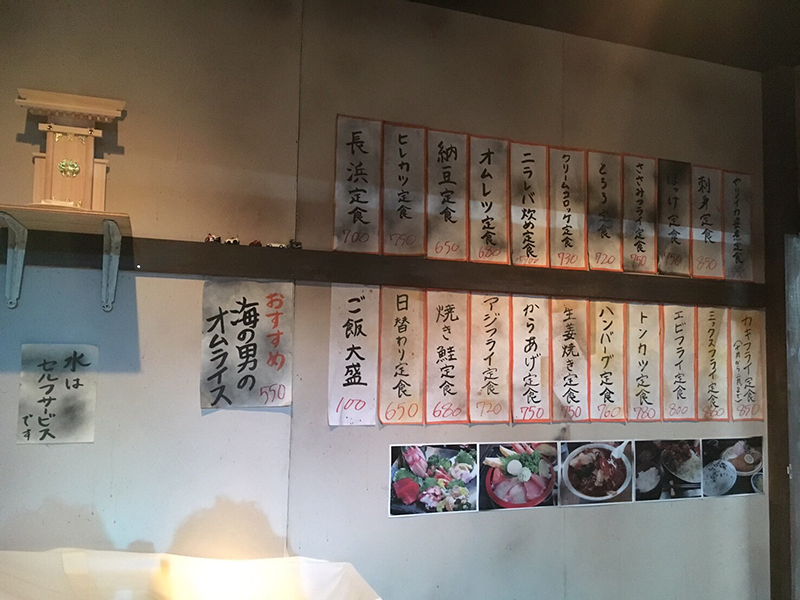 長浜定食
700
ヒレカツ定食
750
納豆定食
650
オムレツ定食
680
ニラレバ炒め定食
クリームコロッケ定食
730
とろろ定食
720
ささみフライ定食
750
ほっけ定食
750
刺身定食
850
定食
ご飯大盛
100
日替わり定食
650
焼き鮭定食
680
アジフライ定食
720
からあげ定食
750
生姜焼き定食
750
ハンバーグ定食
760
トンカツ定食
780
エビフライ定食
800
ミックスフライ定食
カキフライ定食
850
おすすめ
海の男の
オムライス
550
水は
セルフサービス
です